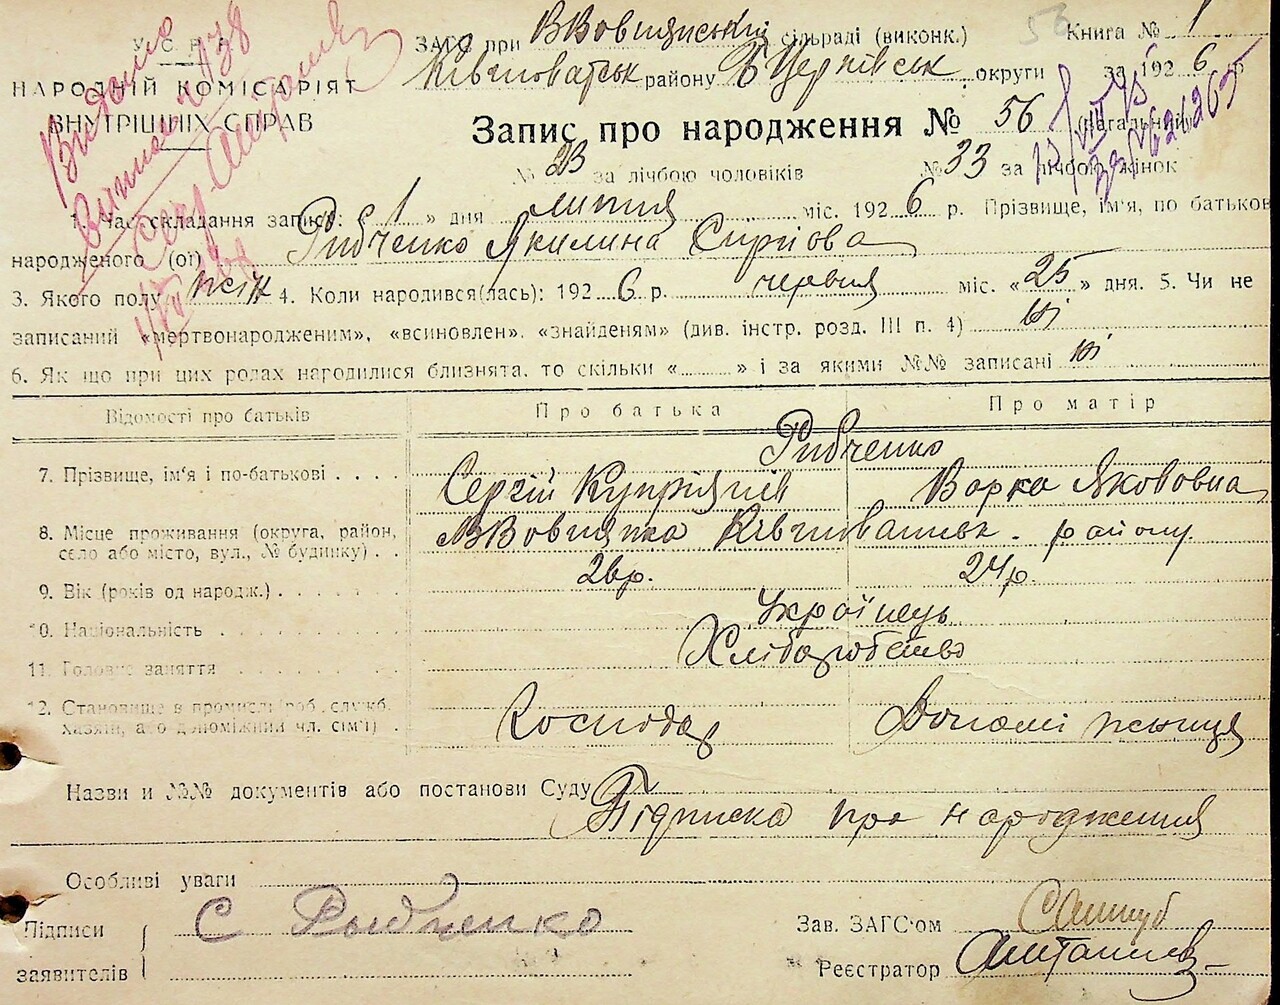 У.С.Р.Р.
НАРОДНІЙ КОМІСАРІЯТ
ВНУТРІШНІХ СПРАВ
ЗАГС при ВВовнянській сільраді (виконк.) Книга № 1
Ківшоватськ району БЦерківськ округи за 1926 р
Запис про народження № 56 (загальний)
№ 23 за лічбою чоловіків № 33 за лічбою жінок
1. Час складання запису: „ 1 » дня липня міс. 1926 р. Прізвище, ім'я, по батькові
народженого (ої) Рибченко Якилина Сиргіова
3. Якого полу жін 4. Коли народився(лась): 1926 р. червня міс. «25» дня. 5. Чи не
записаний «мертвонародженим», «всиновлен», «знайденям» (див. інстр. розд. III п. 4) ні
6. Як що при цих родах народилися близнята, то скільки « » і за якими №№ записані ні
Відомості про батьків Про батька Про матір
Рибченко
7. Прізвище, ім'я і по-батькові Сергій Купріянів Варка Яковōвна
8. Місце проживання (округа, район, село або місто, вул., № будинку) ВВовнянка Ківшоватськ. району
9. Вік (років од народж.) 26р. 24р.
10. Національність Українець
11. Головне заняття Хліборобство
12. Становище в промислі (роб., служб. хазяїн, або допоміжний чл. сім'ї) Господар Допоміжниця
Назви и №№ документів або постанови Суду Підписка про народження
Особливі уваги
Підписи заявителів С Рыбченко
Зав. ЗАГС'ом
Реєстратор